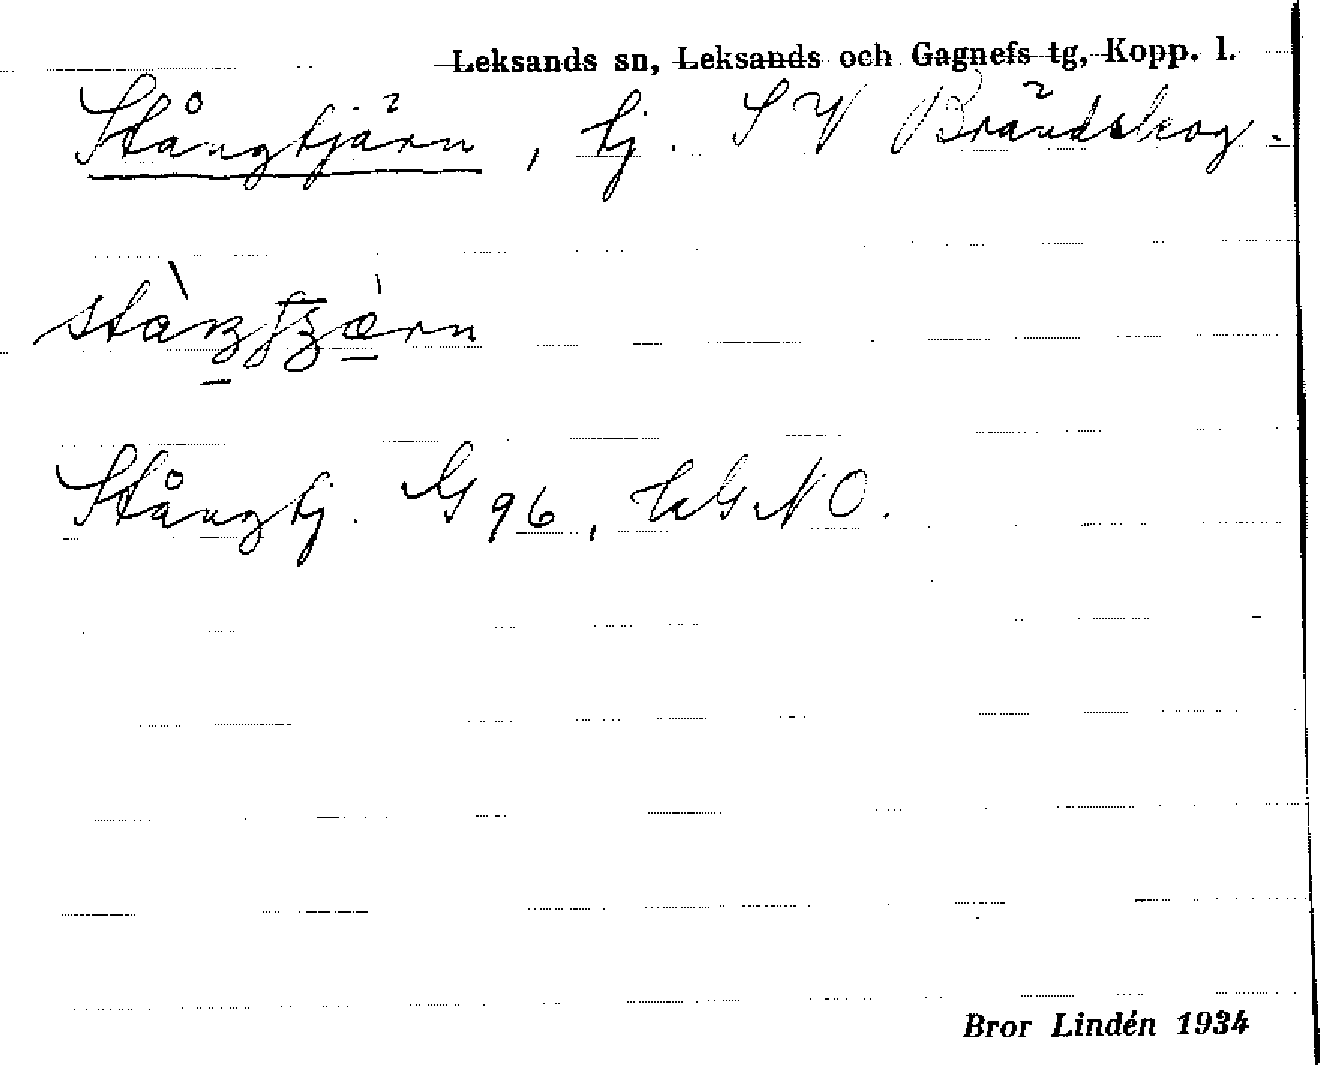 Leksands sn, Leksands och Gagnefs tg, Kopp. l.
Stångtjärn, tj. S V Brändskog.
Stångtj. G 96, HGNO.
Bror Lindén 1934